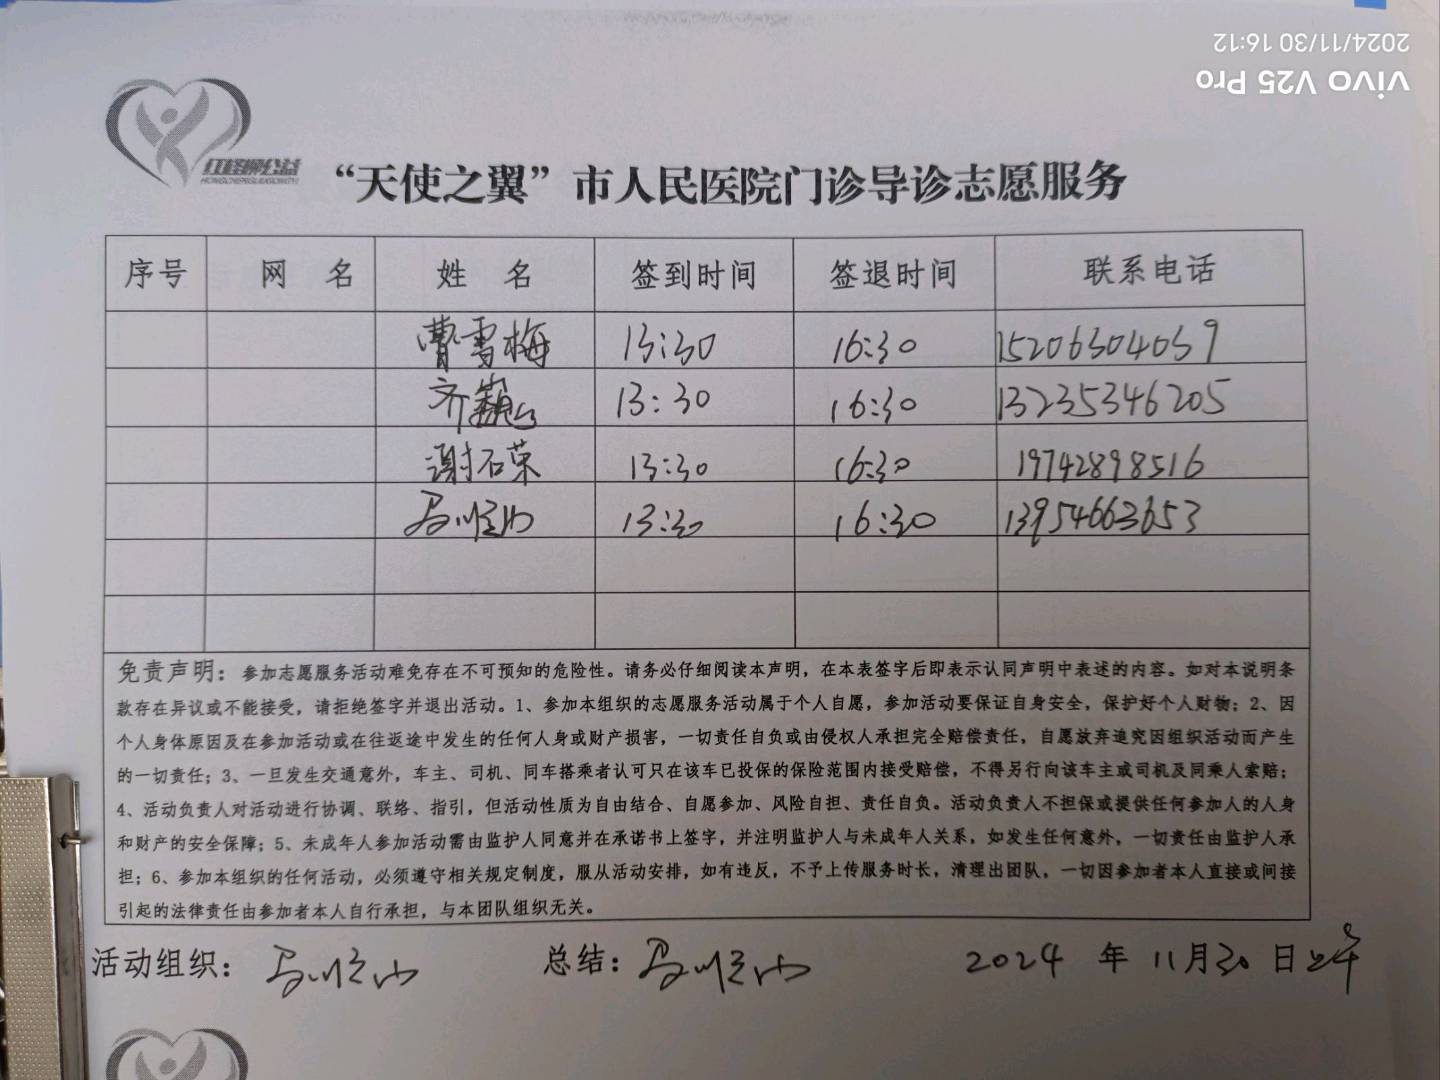 2024/11/30 16:12
vivo V25 Pro
红橙绿公益
HONGCHENGLVGONGYI
“天使之翼”市人民医院门诊导诊志愿服务
序号 网 名 姓 名 签到时间 签退时间 联系电话
曹雪梅 13:30 16:30 15206304039
齐巍 13:30 16:30 13235346205
谢石荣 13:30 16:30 19742898516
13:30 16:30 13954663653
免责声明：参加志愿服务活动难免存在不可预知的危险性。请务必仔细阅读本声明，在本表签字后即表示认同声明中表述的内容。如对本说明条
款存在异议或不能接受，请拒绝签字并退出活动。1、参加本组织的志愿服务活动属于个人自愿，参加活动要保证自身安全，保护好个人财物；2、因
个人身体原因及在参加活动或在往返途中发生的任何人身或财产损害，一切责任自负或由侵权人承担完全赔偿责任，自愿放弃追究因组织活动而产生
的一切责任；3、一旦发生交通意外，车主、司机、同车搭乘者认可只在该车已投保的保险范围内接受赔偿，不得另行向该车主或司机及同乘人索赔；
4、活动负责人对活动进行协调、联络、指引，但活动性质为自由结合、自愿参加、风险自担、责任自负。活动负责人不担保或提供任何参加人的人身
和财产的安全保障；5、未成年人参加活动需由监护人同意并在承诺书上签字，并注明监护人与未成年人关系，如发生任何意外，一切责任由监护人承
担；6、参加本组织的任何活动，必须遵守相关规定制度，服从活动安排，如有违反，不予上传服务时长，清理出团队，一切因参加者本人直接或间接
引起的法律责任由参加者本人自行承担，与本团队组织无关。
活动组织： 总结： 2024 年 11月30 日